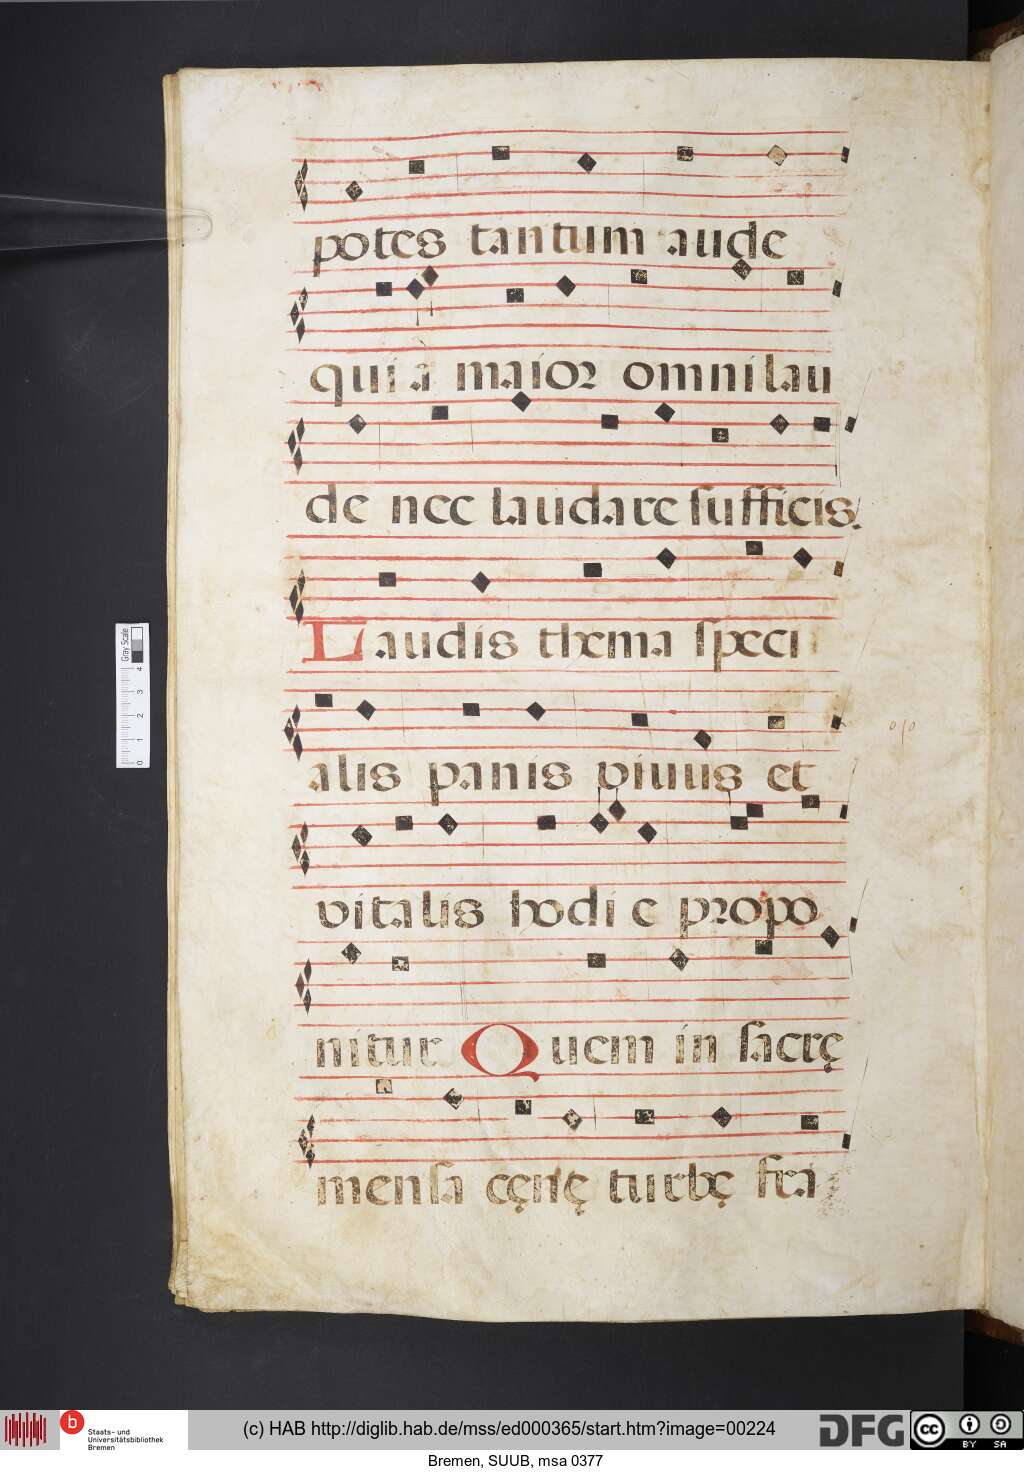 potes tantum aude
quia maior omni lau
de nec laudare sufficis.
Laudis thema speci
alis panis vivus et
vitalis hodie propo
nitur. Quem in sacrę
mensa cęnę turbę fra
Gray Scale
4
3
2
1
0
b
Staats- und
Universitätsbibliothek
Bremen
(c) HAB http://diglib.hab.de/mss/ed000365/start.htm?image=00224
DFG
cc BY SA
Bremen, SUUB, msa 0377